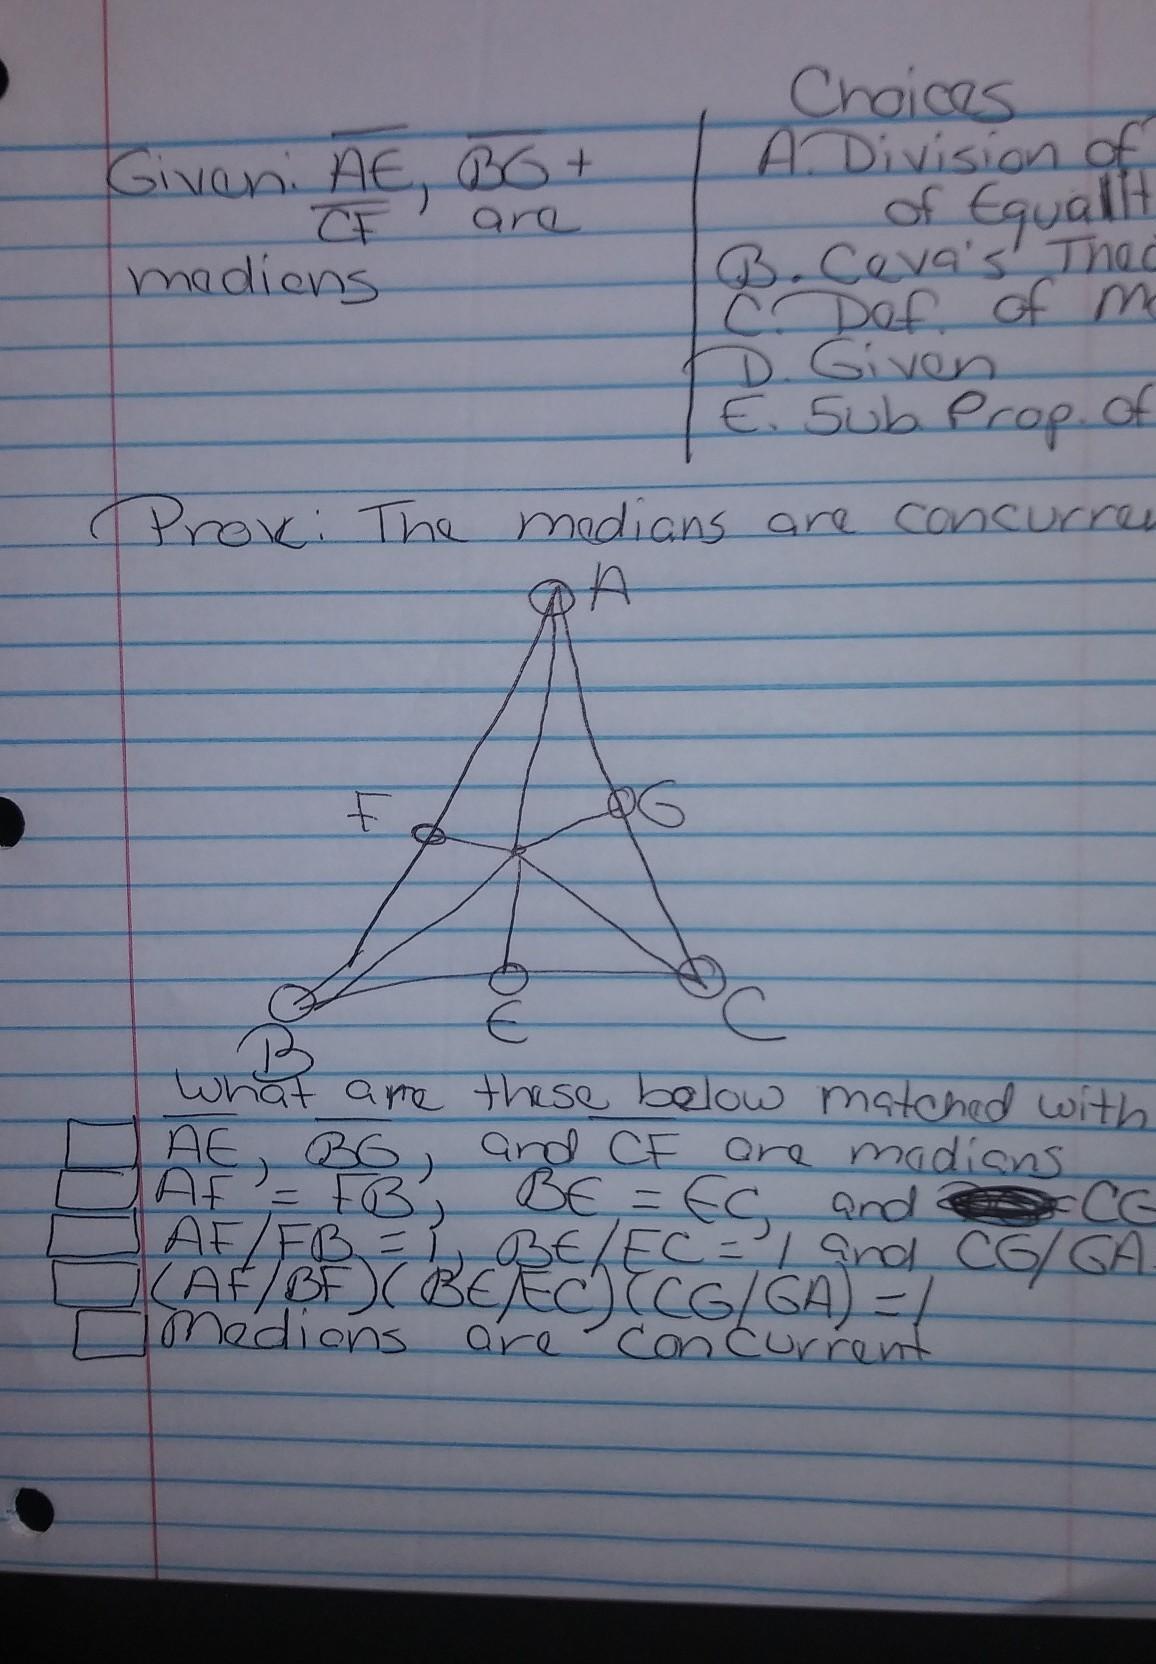 Choices
Given: AE, BG +
CF are
medians
A. Division of
of Equalit
B. Ceva's Theo
C. Def. of Me
D. Given
E. Sub Prop. of
Prove: The medians are concurren
A
F
G
B
E
C
What are these below matched with
AE, BG, and CF are medians
AF = FB, BE = EC, and = CG
AF/FB = 1, BE/EC = 1 and CG/GA
(AF/BF)(BE/EC)(CG/GA) = 1
Medians are concurrent